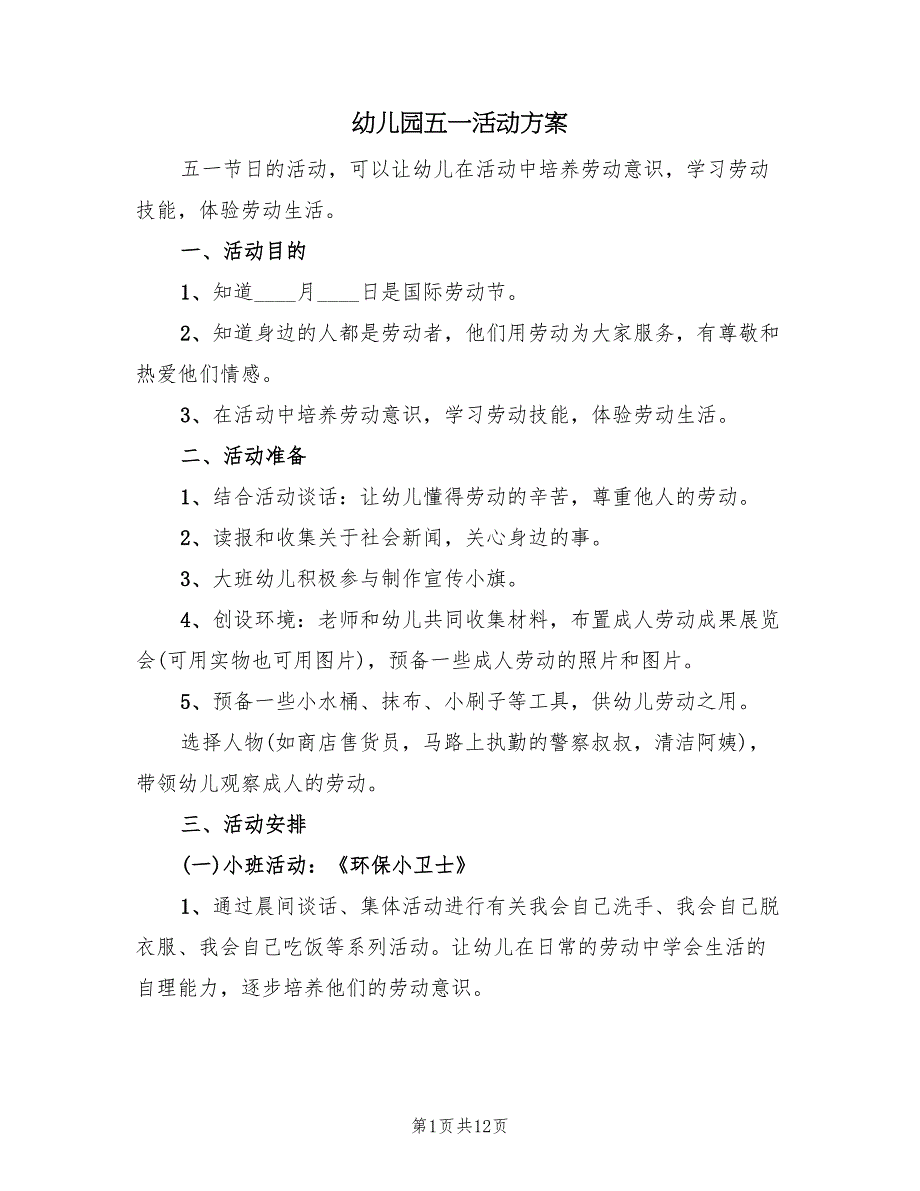 幼儿园五一活动方案
五一节日的活动，可以让幼儿在活动中培养劳动意识，学习劳动
技能，体验劳动生活。
一、活动目的
1、知道____月____日是国际劳动节。
2、知道身边的人都是劳动者，他们用劳动为大家服务，有尊敬和
热爱他们情感。
3、在活动中培养劳动意识，学习劳动技能，体验劳动生活。
二、活动准备
1、结合活动谈话：让幼儿懂得劳动的辛苦，尊重他人的劳动。
2、读报和收集关于社会新闻，关心身边的事。
3、大班幼儿积极参与制作宣传小旗。
4、创设环境：老师和幼儿共同收集材料，布置成人劳动成果展览
会(可用实物也可用图片)，预备一些成人劳动的照片和图片。
5、预备一些小水桶、抹布、小刷子等工具，供幼儿劳动之用。
选择人物(如商店售货员，马路上执勤的警察叔叔，清洁阿姨)，
带领幼儿观察成人的劳动。
三、活动安排
(一)小班活动：《环保小卫士》
1、通过晨间谈话、集体活动进行有关我会自己洗手、我会自己脱
衣服、我会自己吃饭等系列活动。让幼儿在日常的劳动中学会生活的
自理能力，逐步培养他们的劳动意识。
第1页共12页